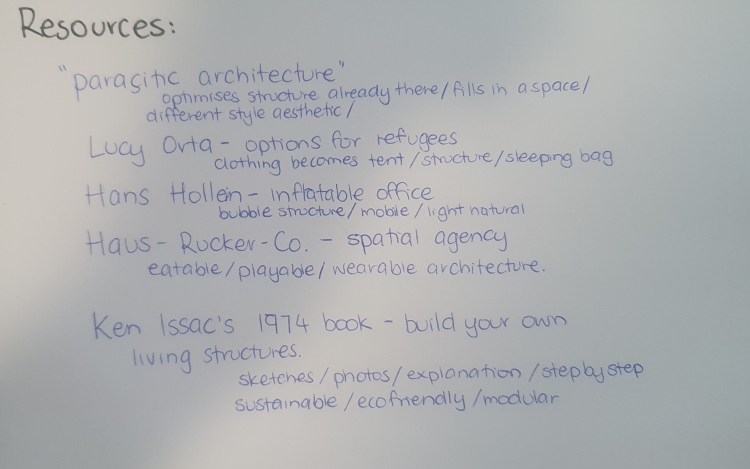 Resources:
"parasitic architecture"
optimises structure already there/fills in a space/
different style aesthetic/
Lucy Orta - options for refugees
clothing becomes tent/structure/sleeping bag
Hans Hollein - inflatable office
bubble structure/mobile/light natural
Haus-Rucker-Co. - spatial agency
eatable/playable/wearable architecture.
Ken Issac's 1974 book - build your own
living structures.
sketches/photos/explanation/step by step
sustainable/ecofriendly/modular